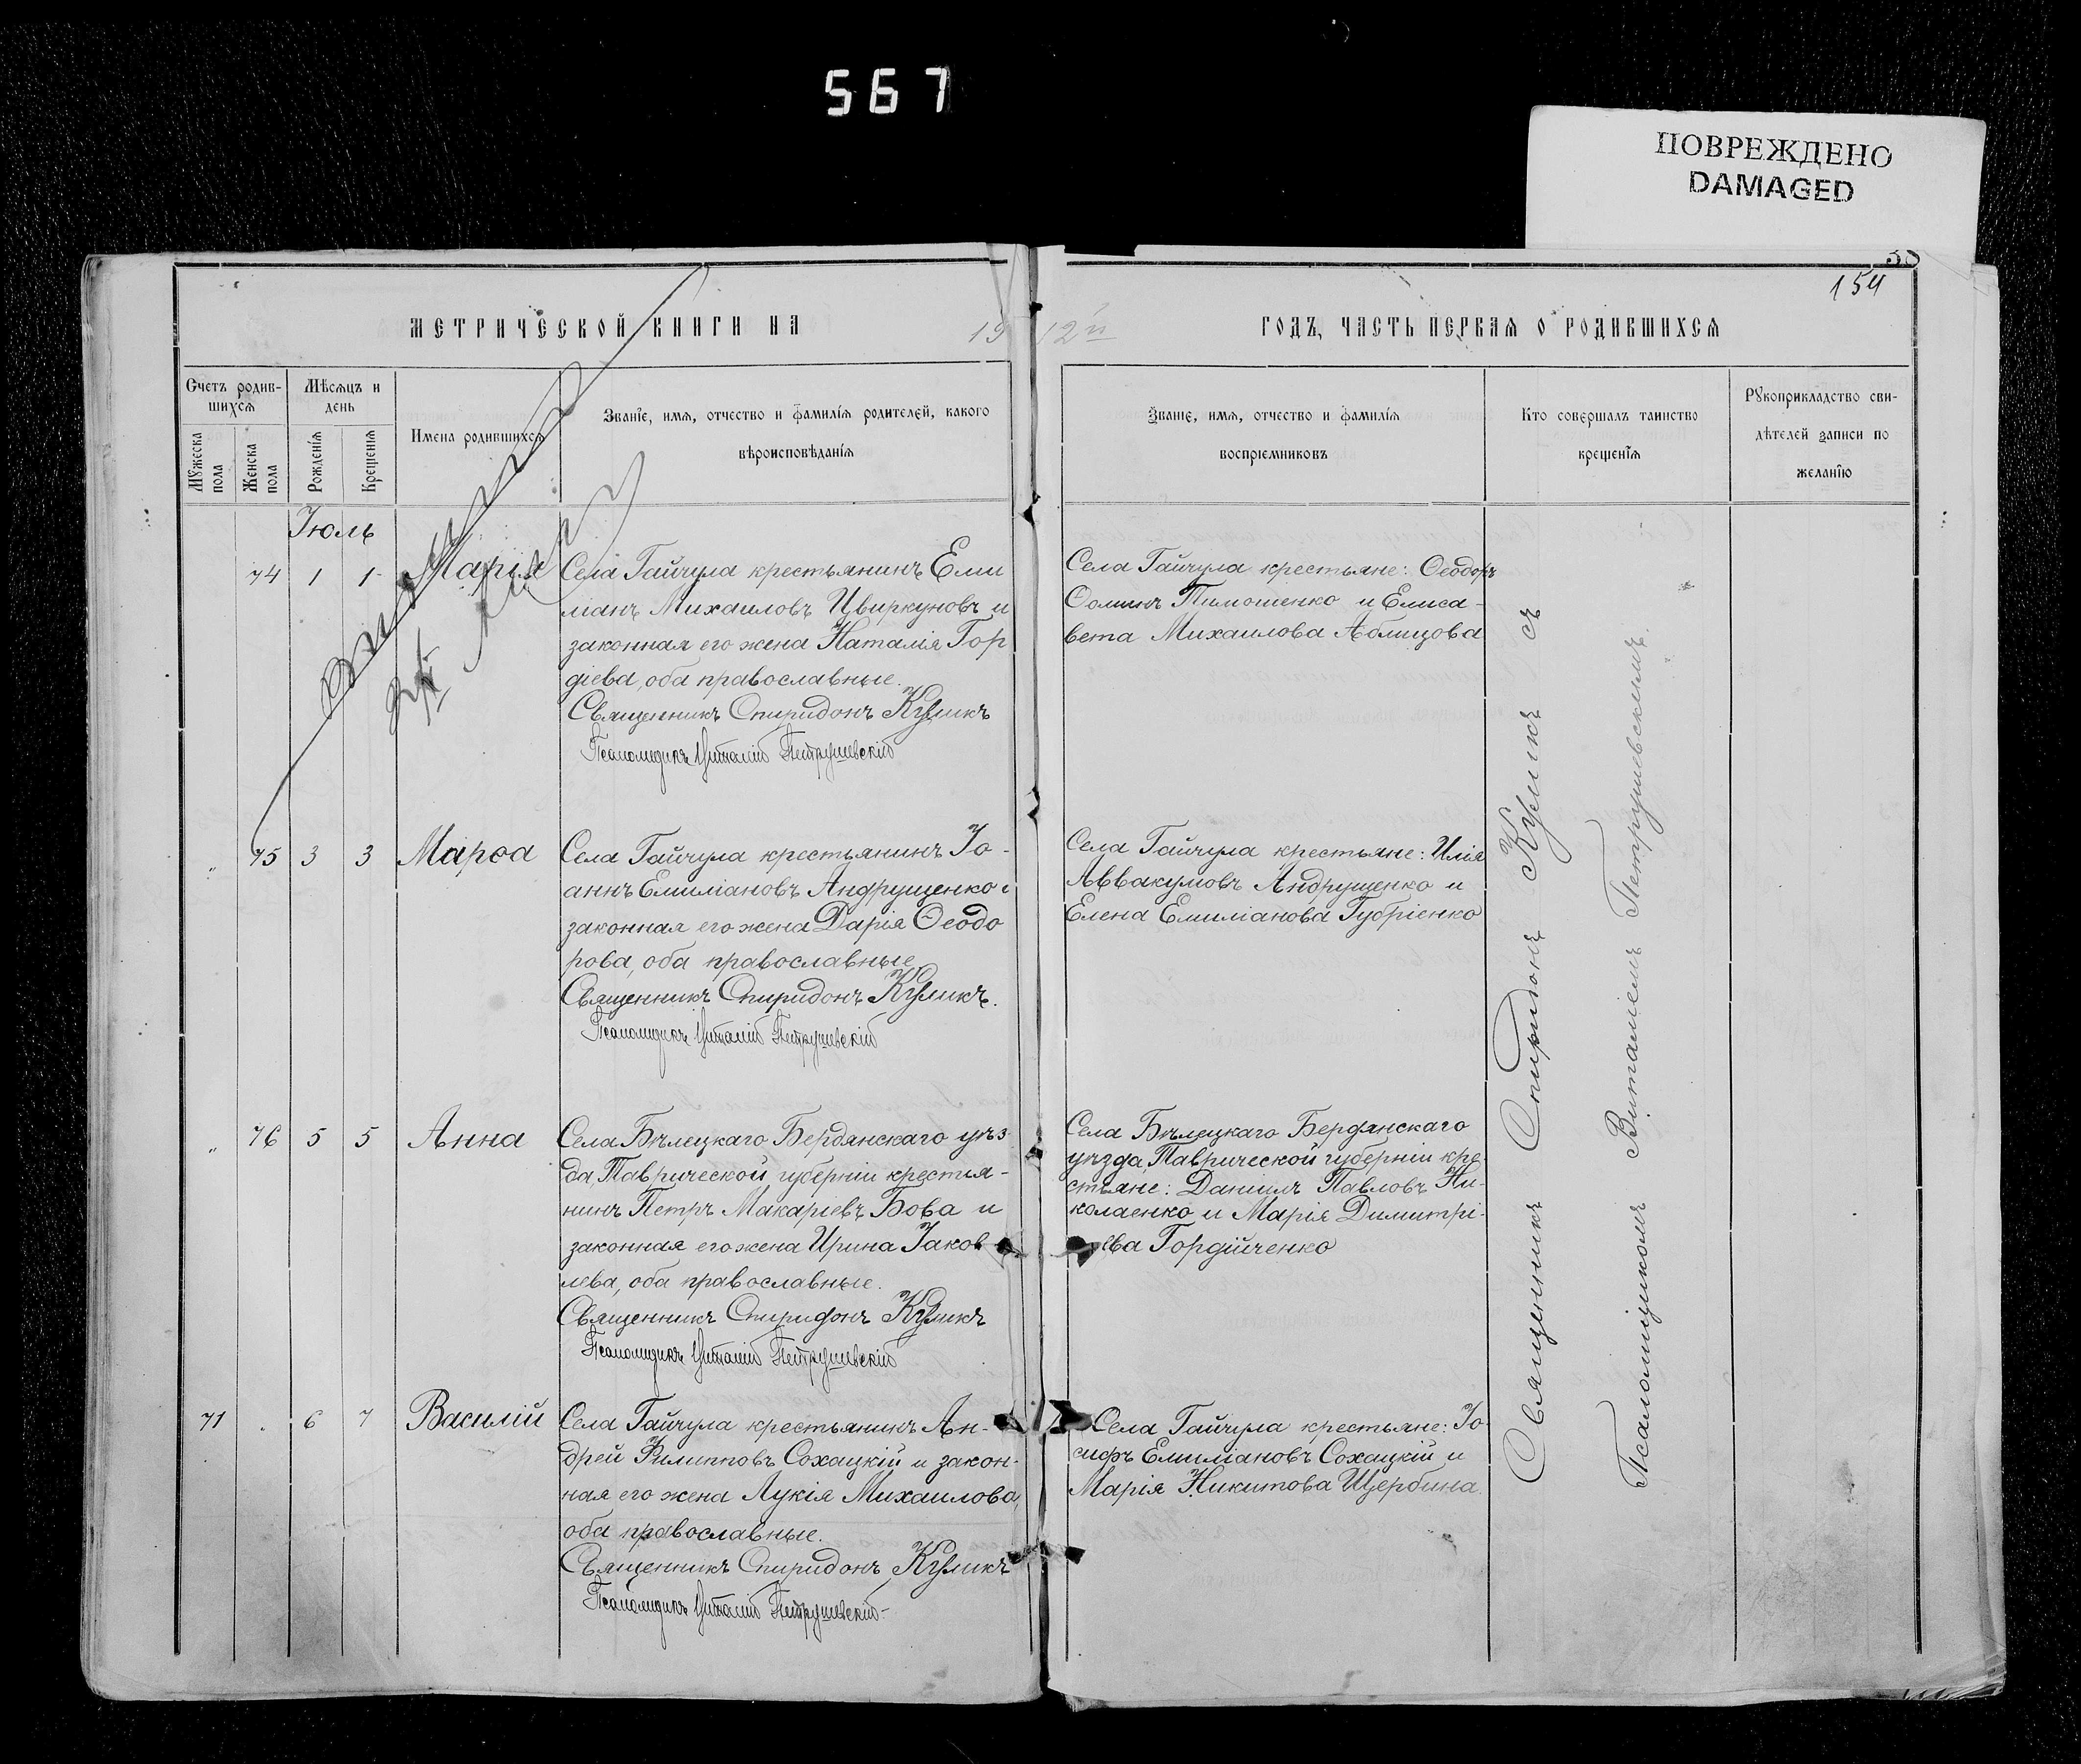 567
ПОВРЕЖДЕНО
DAMAGED
154
МЕТРИЧЕСКОЙ КНИГИ НА 1912й ГОДЪ, ЧАСТЬ ПЕРВАЯ О РОДИВШИХСЯ
Счетъ родив-
шихся
Мѣсяцъ и
день
Мужеска
пола
Женска
пола
Рожденія
Крещенія
Имена родившихся
Званіе, имя, отчество и фамилія родителей, какого
вѣроисповѣданія
Званіе, имя, отчество и фамилія
воспріемниковъ
Кто совершалъ таинство
крещенія
Рукоприкладство сви-
дѣтелей записи по
желанію
Іюль
74 1 1 Марія
Села Гайчула крестьянинъ Еми
ліанъ Михаиловъ Цвиркуновъ и
законная его жена Наталія Гор
діева, оба православные.
Священникъ Спиридонъ Куликъ
Псаломщикъ Виталій Петрушевскій
Села Гайчула крестьяне: Ѳеодоръ
Ѳоминъ Тимошенко и Елиса-
вета Михаилова Аблицова
" 75 3 3 Марѳа
Села Гайчула крестьянинъ Іо-
аннъ Емиліановъ Андрущенко и
законная его жена Дарія Ѳеодо
рова, оба православные
Священникъ Спиридонъ Куликъ.
Псаломщикъ Виталій Петрушевскій
Села Гайчула крестьяне: Илія
Аввакумовъ Андрущенко и
Елена Емиліанова Губріенко
" 76 5 5 Анна
Села Бѣлецкаго Бердянскаго уѣз-
да, Таврической губерніи крестья-
нинъ Петръ Макаріевъ Бова и
законная его жена Ирина Іаков-
лева, оба православные.
Священникъ Спиридонъ Куликъ
Псаломщикъ Виталій Петрушевскій
Села Бѣлецкаго Бердянскаго
уѣзда, Таврической губерніи кре-
стьяне: Даніилъ Павловъ Ни-
колаенко и Марія Димитрі-
ева Гордійченко
71 . 6 7 Василій
Села Гайчула крестьянинъ Ан-
дрей Филипповъ Сохацкій и закон-
ная его жена Лукія Михаилова,
оба православные.
Священникъ Спиридонъ Куликъ
Псаломщикъ Виталій Петрушевскій
Села Гайчула крестьяне: Іо-
сифъ Емиліановъ Сохацкій и
Марія Никитова Щербина.
Священникъ Спиридонъ Куликъ съ
Псаломщикомъ Виталіемъ Петрушевскимъ.